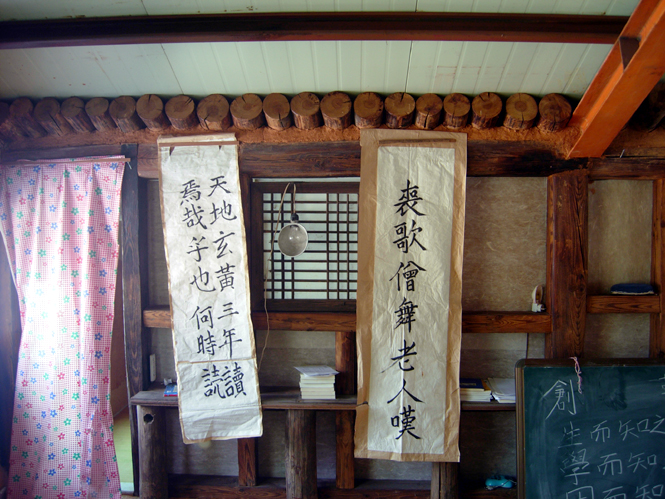 天地玄黃三年讀
焉哉乎也何時読
喪歌僧舞老人嘆
創
生而知之
學而知